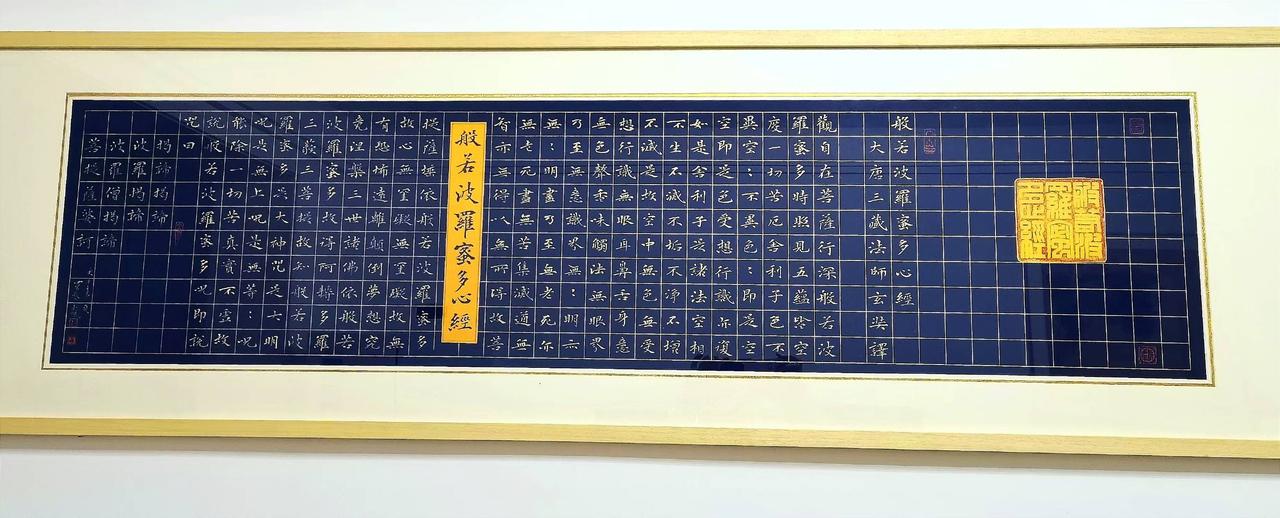 般若波羅蜜多心經
大唐三藏法師玄奘譯
觀自在菩薩行深般若波
羅蜜多時照見五蘊皆空
度一切苦厄舍利子色不
異空：不異色：即是空
空即是色受想行識亦復
如是舍利子是諸法空相
不生不滅不垢不淨不增
不減是故空中無色無受
想行識無眼耳鼻舌身意
無色聲香味觸法無眼界
乃至無意識界無：明亦
無：明盡乃至無老死亦
無老死盡無苦集滅道無
智亦無得以無所得故菩
般若波羅蜜多心經
提薩埵依般若波羅蜜多
故心無罣礙無罣礙故無
有恐怖遠離顛倒夢想究
竟涅槃三世諸佛依般若
波羅蜜多故得阿耨多羅
三藐三菩提故知般若波
羅蜜多是大神咒是大明
咒是無上咒是無等：咒
能除一切苦真實不虛故
說般若波羅蜜多咒即說
咒曰
揭諦揭諦
波羅揭諦
波羅僧揭諦
菩提薩婆訶